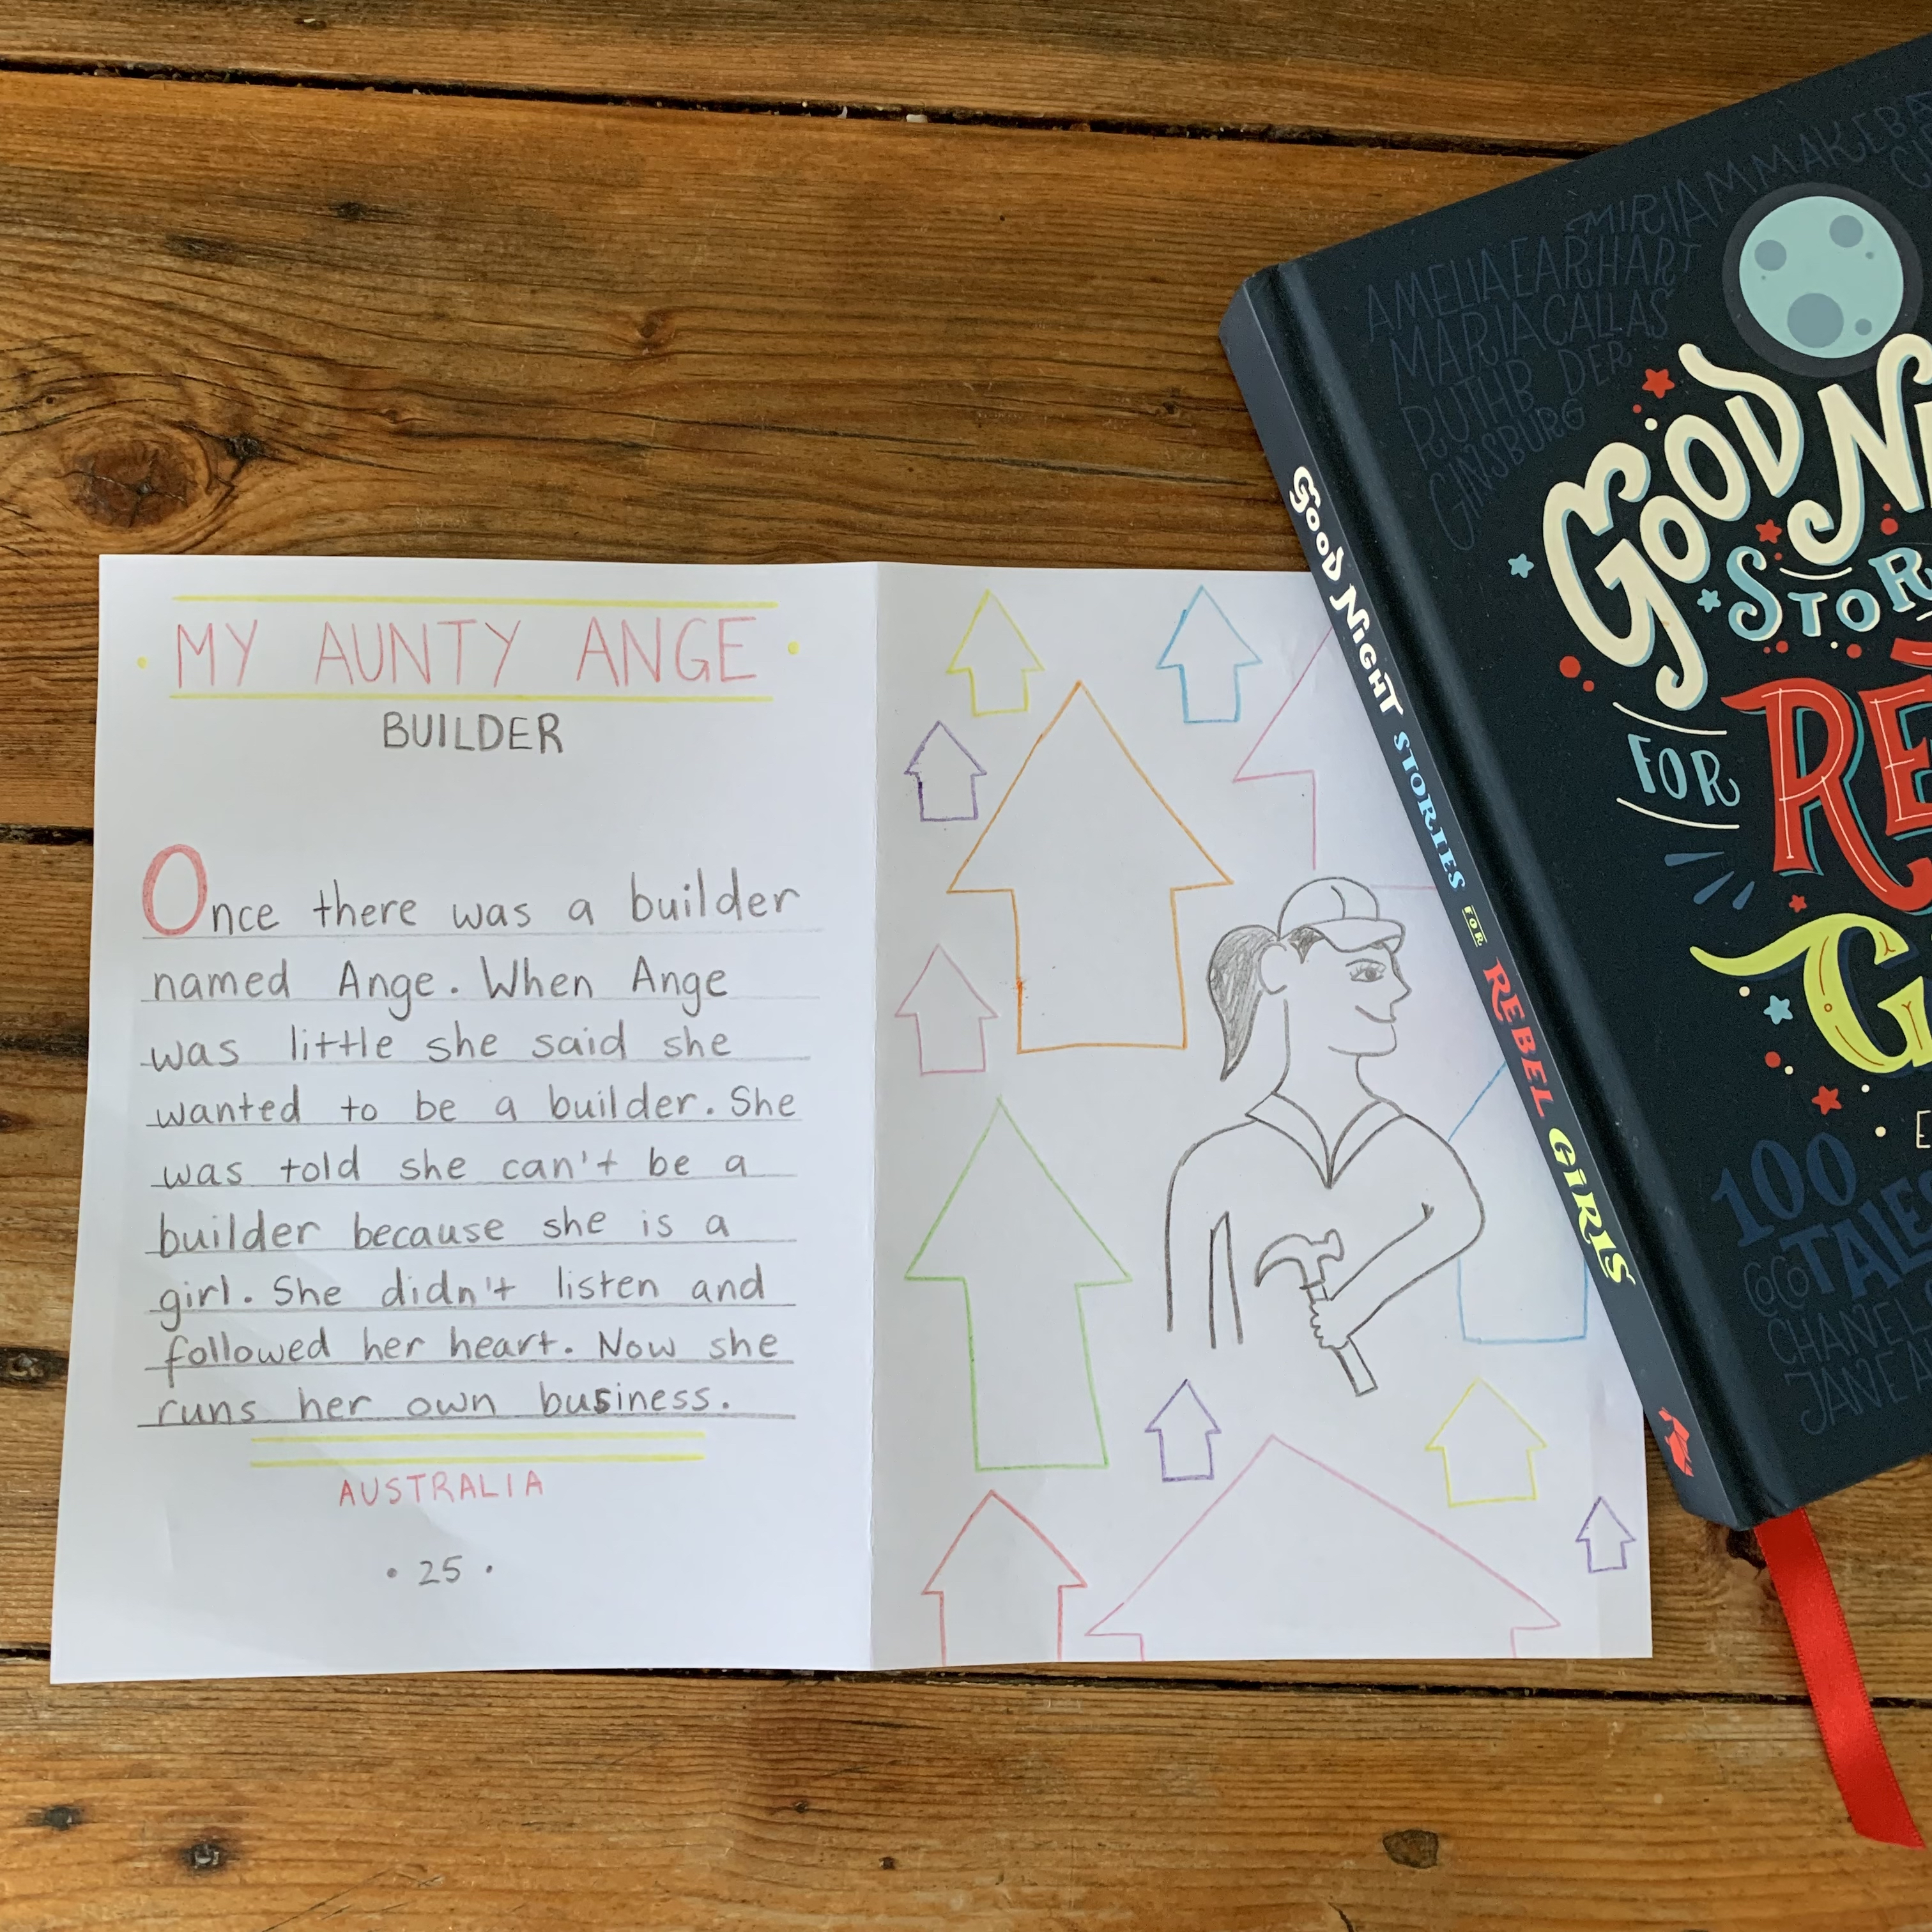 MY AUNTY ANGE
BUILDER
Once there was a builder
named Ange. When Ange
was little she said she
wanted to be a builder. She
was told she can't be a
builder because she is a
girl. She didn't listen and
followed her heart. Now she
runs her own business.
AUSTRALIA
• 25 •
GOOD NIGHT STORIES FOR REBEL GIRLS
MIRIAM MAKEBA
AMELIA EARHART
MARIA CALLAS
RUTH B DER
GINSBURG
GOOD NI
STOR
FOR
RE
G
100
TALES
COCO
CHANEL
JANE A